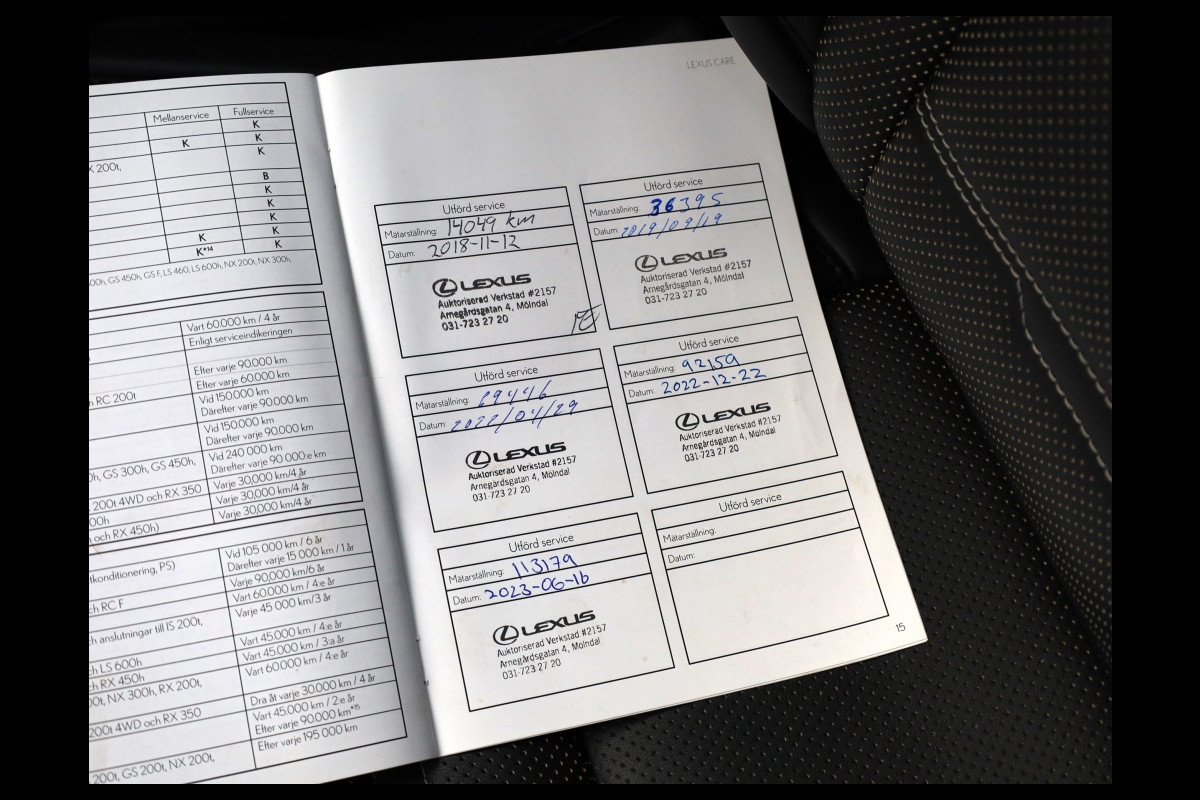 Mellanservice Fullservice
K
K K
X 200t, K
B
K
K
K
K K
K*14 K
00h, GS 450h, GS F, LS 460, LS 600h, NX 200t, NX 300h,
Vart 60.000 km / 4 år
Enligt serviceindikeringen
Efter varje 90.000 km
Efter varje 60.000 km
ch RC 200t Vid 150.000 km
Därefter varje 90.000 km
Vid 150.000 km
Därefter varje 90.000 km
0h, GS 300h, GS 450h, Vid 240 000 km
Därefter varje 90 000:e km
200t 4WD och RX 350 Varje 30,000 km/4 år
00h Varje 30,000 km/4 år
och RX 450h) Varje 30,000 km/4 år
tkonditionering, PS) Vid 105 000 km / 6 år
Därefter varje 15 000 km / 1 år
Varje 90,000 km/6 år
ch RC F Vart 60.000 km / 4:e år
ch anslutningar till IS 200t, Varje 45 000 km/3 år
ch LS 600h Vart 45.000 km / 4:e år
ch RX 450h Vart 45.000 km / 3:a år
00t, NX 300h, RX 200t, Vart 60.000 km / 4:e år
200t 4WD och RX 350 Dra åt varje 30.000 km / 4 år
Vart 45.000 km / 2:e år
Efter varje 90.000 km*15
200t, GS 200t, NX 200t, Efter varje 195 000 km
LEXUS CARE
Utförd service
Mätarställning: 14049 km
Datum: 2018-11-12
LEXUS
Auktoriserad Verkstad #2157
Arnegårdsgatan 4, Mölndal
031-723 27 20
Utförd service
Mätarställning: 36395
Datum: 2019/09/19
LEXUS
Auktoriserad Verkstad #2157
Arnegårdsgatan 4, Mölndal
031-723 27 20
Utförd service
Mätarställning:
Datum: 2022/04/29
LEXUS
Auktoriserad Verkstad #2157
Arnegårdsgatan 4, Mölndal
031-723 27 20
Utförd service
Mätarställning: 92159
Datum: 2022-12-22
LEXUS
Auktoriserad Verkstad #2157
Arnegårdsgatan 4, Mölndal
031-723 27 20
Utförd service
Mätarställning: 113179
Datum: 2023-06-16
LEXUS
Auktoriserad Verkstad #2157
Arnegårdsgatan 4, Mölndal
031-723 27 20
Utförd service
Mätarställning:
Datum:
15